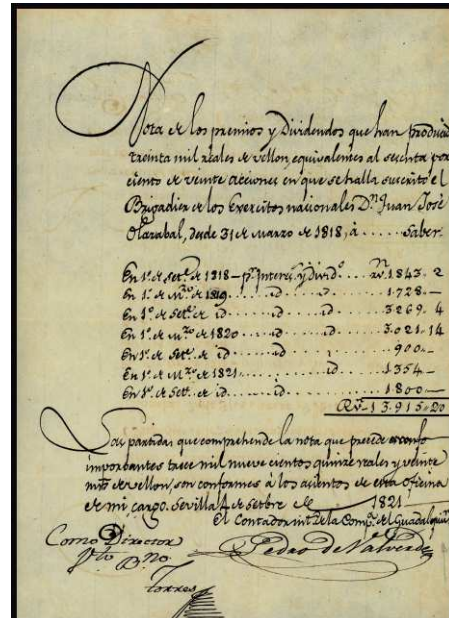 Nota de los premios y Dividendos que han producid
treinta mil reales de vellon, equivalentes al sesenta por
ciento de veinte acciones en que se halla suscrito el
Brigadier de los Exercitos nacionales Dn. Juan José
Olazabal, desde 31 de Marzo de 1818, á ..... Saber.
En 1º. de Setre. de 1818 - pr. Interes. y divido. ... rvn. 1843.. 2
En 1º. de Mzo. de 1819 ..... id ..... id ..... 1.728.. -
En 1º. de Setre. de id ..... id ..... 3269.. 4
En 1º. de Mzo. de 1820 ..... id ..... id ..... 3.021.. 14
En 1º. de Setre. de id ..... id ..... 900.. -
En 1º. de Mzo. de 1821 ..... id ..... 1354.. -
En 1º. de Setre. de id ..... id ..... 1800.. -
Rvn. 13.915.. 20
Las partidas que comprehende la nota que precede
importantes trece mil nueve cientos quince reales y veinte
mrs. de vellon, son conformes á los asientos de esta oficina
de mi cargo. Sevilla 4 de Setbre de 1821
El Contador intº. de la Compª. del Guadalquivir
Como Director
Vto Bno.
Pedro de Valverde
Torres